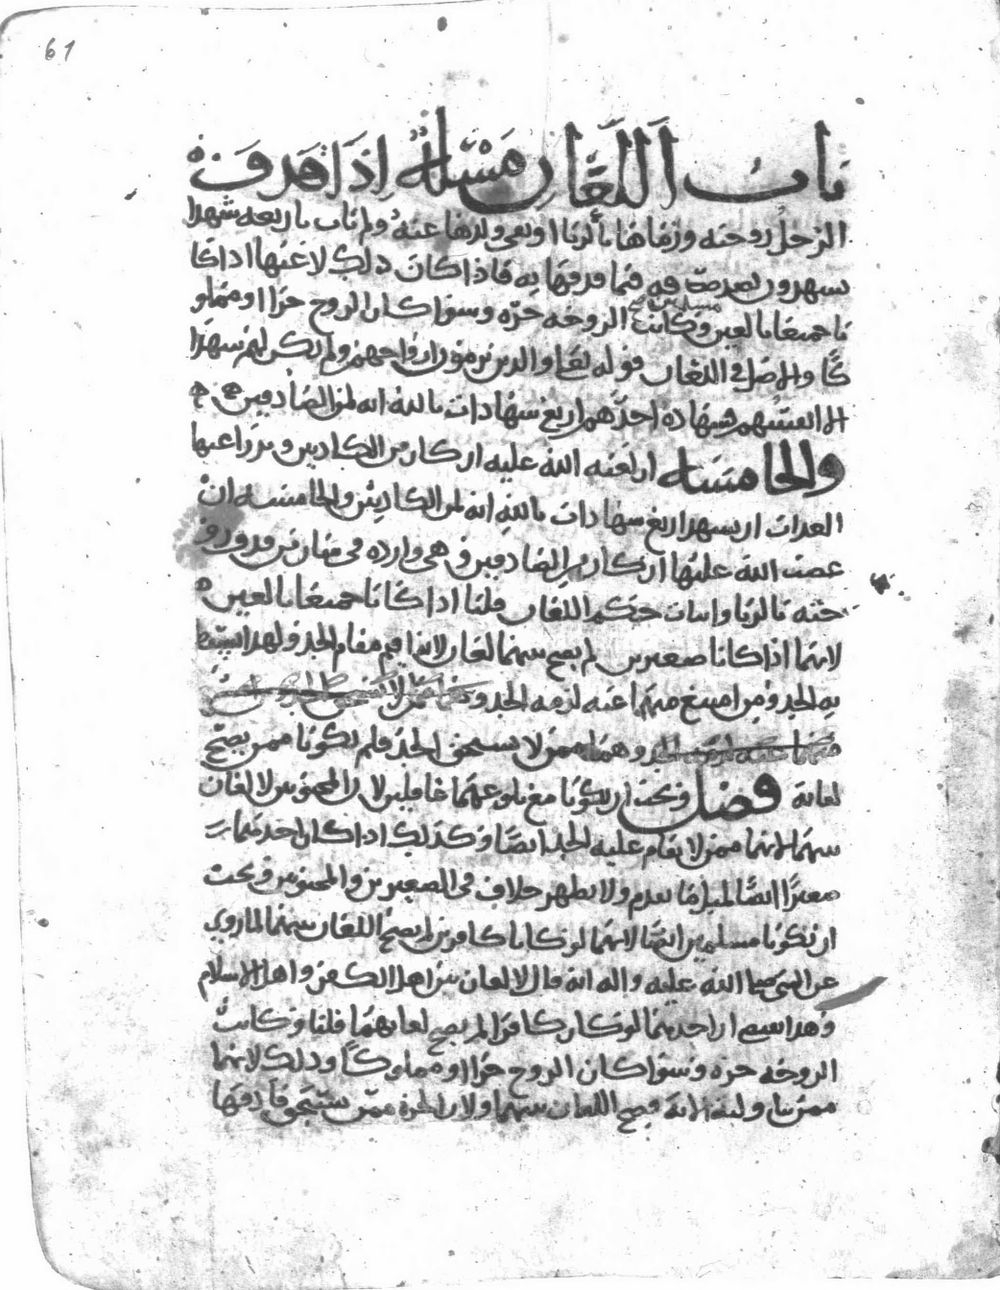 61
باب اللعان مسئلة اذا قذف
الرجل زوجته ورماها بالزنا او نفى ولدها عنه ولم يات باربعه شهدا
يشهدون بصدقه فيما قذفها به فاذا كان ذلك لاعنها اذا كا
نا جميعا بالغين وكانت الزوجه حره وسوا كان الزوج حرا او مملو
كا والاصل في اللعان قوله تعالى والذين يرمون ازواجهم ولم يكن لهم شهدا
الا انفسهم فشهاده احدهم اربع شهادات بالله انه لمن الصادقين
والخامسه ان لعنه الله عليه ان كان من الكاذبين ويدروا عنها
العذاب ان تشهد اربع شهادات بالله انه لمن الكاذبين والخامسه ان
غضب الله عليها ان كان من الصادقين فهي وارده في من قذف زو
جته بالزنا واثبات حكم اللعان قلنا اذا كانا جميعا بالغين
لانهما اذا كانا صغيرين لم يصح بينهما لعان لانه اقيم مقام الحد ولهذا يسقط
به الحد ومن امتنع منهما عنه لزمه الحد
وهما ممن لا يستحق الحد فلم يكونا ممن يصح
لعانه فصل ويجب ان يكونا مع بلوغهما عاقلين لان المجنونين لا لعان
بينهما لانهما ممن لا يقام عليه الحد ايضا وكذلك اذا كان احدهما
صغيرا ايضا لمثل ما تقدم ولا يظهر خلاف في الصغيرين والمجنونين ويجب
ان يكونا مسلمين ايضا لانهما لو كانا كافرين لم يصح اللعان بينهما لما روي
عن النبي صلى الله عليه واله انه قال لا لعان بين اهل الكفر واهل الاسلام
وهذا ان احدهما لو كان كافرا لم يصح لعانهما قلنا وكانت
الزوجه حره وسوا كان الزوج حرا او مملوكا وذلك لانهما
ممن الايه فصح اللعان بينهما ولان الحره ممن يستحق قاذفها